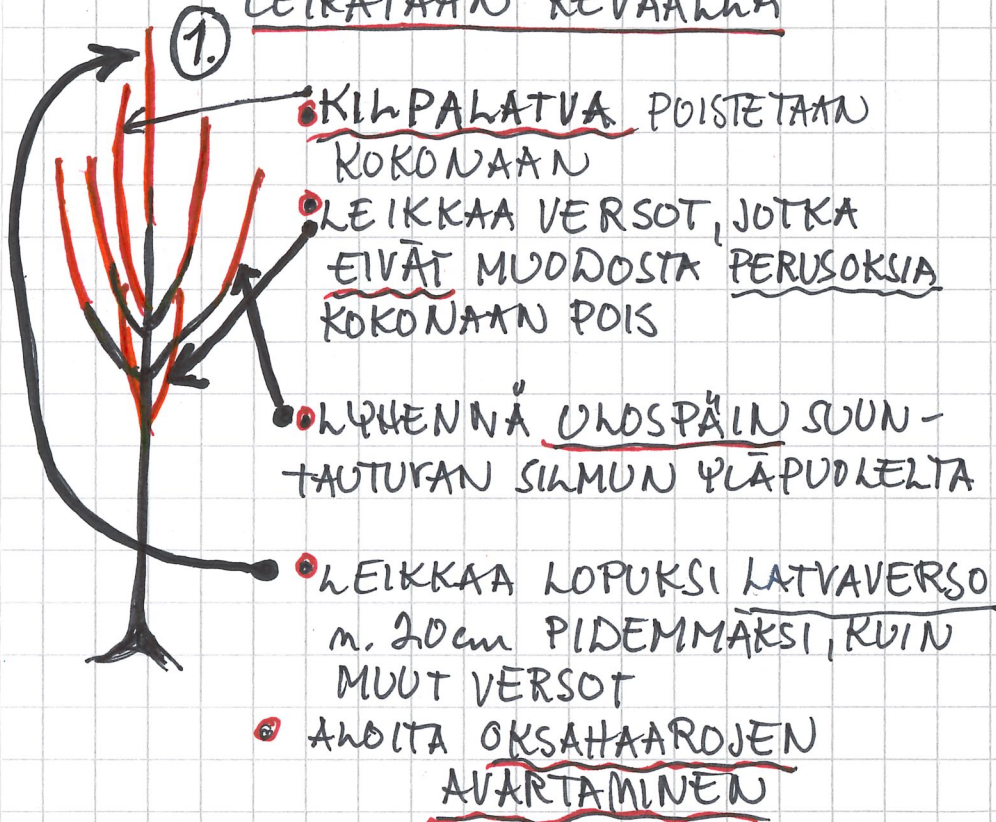 LEIKATAAN KEVÄÄLLÄ
1.
KILPALATVA POISTETAAN
KOKONAAN
LEIKKAA VERSOT, JOTKA
EIVÄT MUODOSTA PERUSOKSIA
KOKONAAN POIS
LYHENNÄ ULOSPÄIN SUUN-
TAUTUVAN SILMUN YLÄPUOLELTA
LEIKKAA LOPUKSI LATVAVERSO
n. 20cm PIDEMMÄKSI, KUIN
MUUT VERSOT
ALOITA OKSAHAAROJEN
AVARTAMINEN